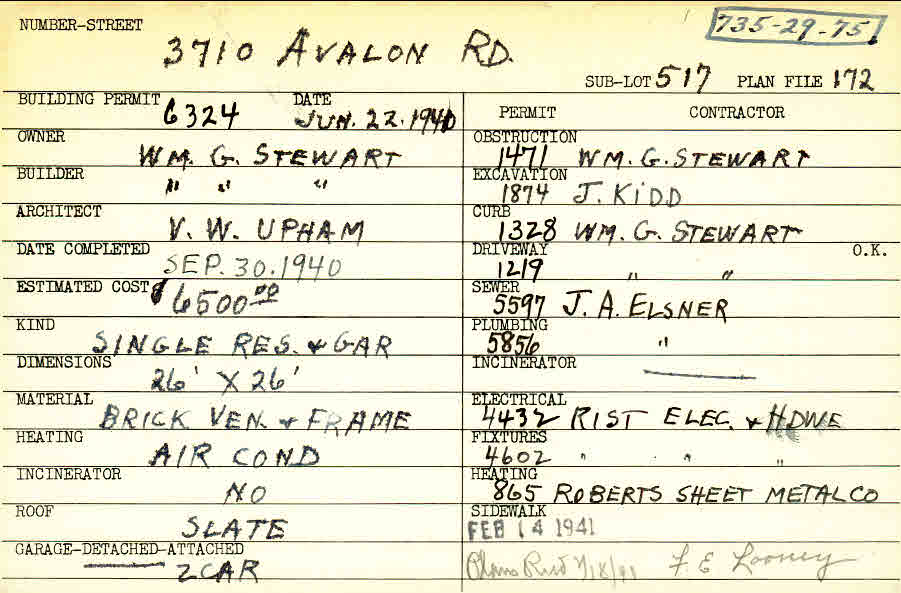 NUMBER-STREET
3710 AVALON RD.
735-29-75
SUB-LOT 517 PLAN FILE 172
BUILDING PERMIT 6324 DATE JUN. 22. 1940
OWNER WM. G. STEWART
BUILDER " " "
ARCHITECT V. W. UPHAM
DATE COMPLETED SEP. 30. 1940
ESTIMATED COST $6500.00
KIND SINGLE RES. & GAR
DIMENSIONS 26' X 26'
MATERIAL BRICK VEN. & FRAME
HEATING AIR COND
INCINERATOR NO
ROOF SLATE
GARAGE-DETACHED-ATTACHED
2 CAR
PERMIT CONTRACTOR
OBSTRUCTION
1471 WM. G. STEWART
EXCAVATION
1874 J. KIDD
CURB
1328 WM. G. STEWART
DRIVEWAY O.K.
1219 " "
SEWER
5597 J. A. ELSNER
PLUMBING
5856 "
INCINERATOR
ELECTRICAL
4432 RIST ELEC. & HDWE
FIXTURES
4602 " " "
HEATING
865 ROBERTS SHEET METAL CO
SIDEWALK
FEB 14 1941
F E Looney